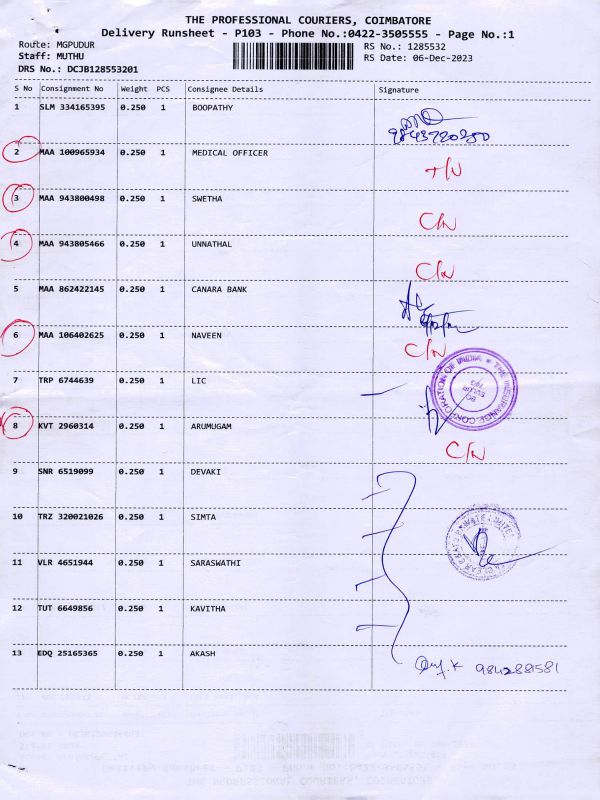 THE PROFESSIONAL COURIERS, COIMBATORE
Delivery Runsheet - P103 - Phone No.:0422-3505555 - Page No.:1
Route: MGPUDUR
RS No.: 1285532
Staff: MUTHU
RS Date: 06-Dec-2023
DRS No.: DCJB128553201
S No Consignment No Weight PCS Consignee Details Signature
1 SLM 334165395 0.250 1 BOOPATHY
9843720250
2 MAA 100965934 0.250 1 MEDICAL OFFICER
3 MAA 943800498 0.250 1 SWETHA
C/N
4 MAA 943805466 0.250 1 UNNATHAL
C/N
5 MAA 862422145 0.250 1 CANARA BANK
6 MAA 106402625 0.250 1 NAVEEN
C/N
7 TRP 6744639 0.250 1 LIC
INSURANCE CORPORATION OF INDIA
8 KVT 2960314 0.250 1 ARUMUGAM
C/N
9 SNR 6519099 0.250 1 DEVAKI
10 TRZ 320021026 0.250 1 SIMTA
11 VLR 4651944 0.250 1 SARASWATHI
12 TUT 6649856 0.250 1 KAVITHA
13 EDQ 25165365 0.250 1 AKASH
9842881581